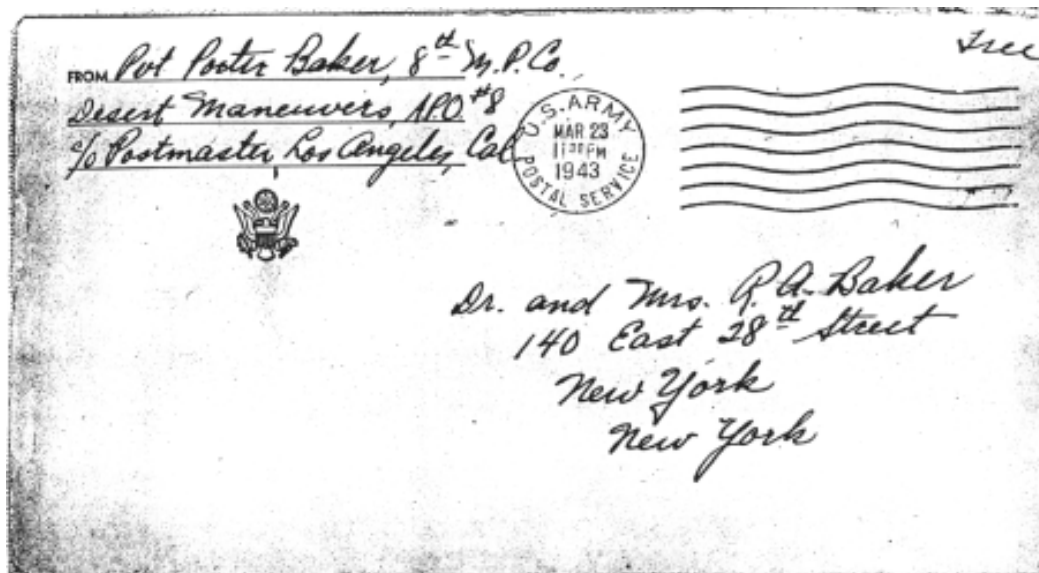 Free
FROM Pvt Porter Baker, 8th M.P. Co.,
Desert Maneuvers, A.P.O. #8
c/o Postmaster Los Angeles, Cal
U.S. ARMY
MAR 23
11 30 PM
1943
POSTAL SERVICE
Dr. and Mrs. R. A. Baker
140 East 28th Street
New York
New York